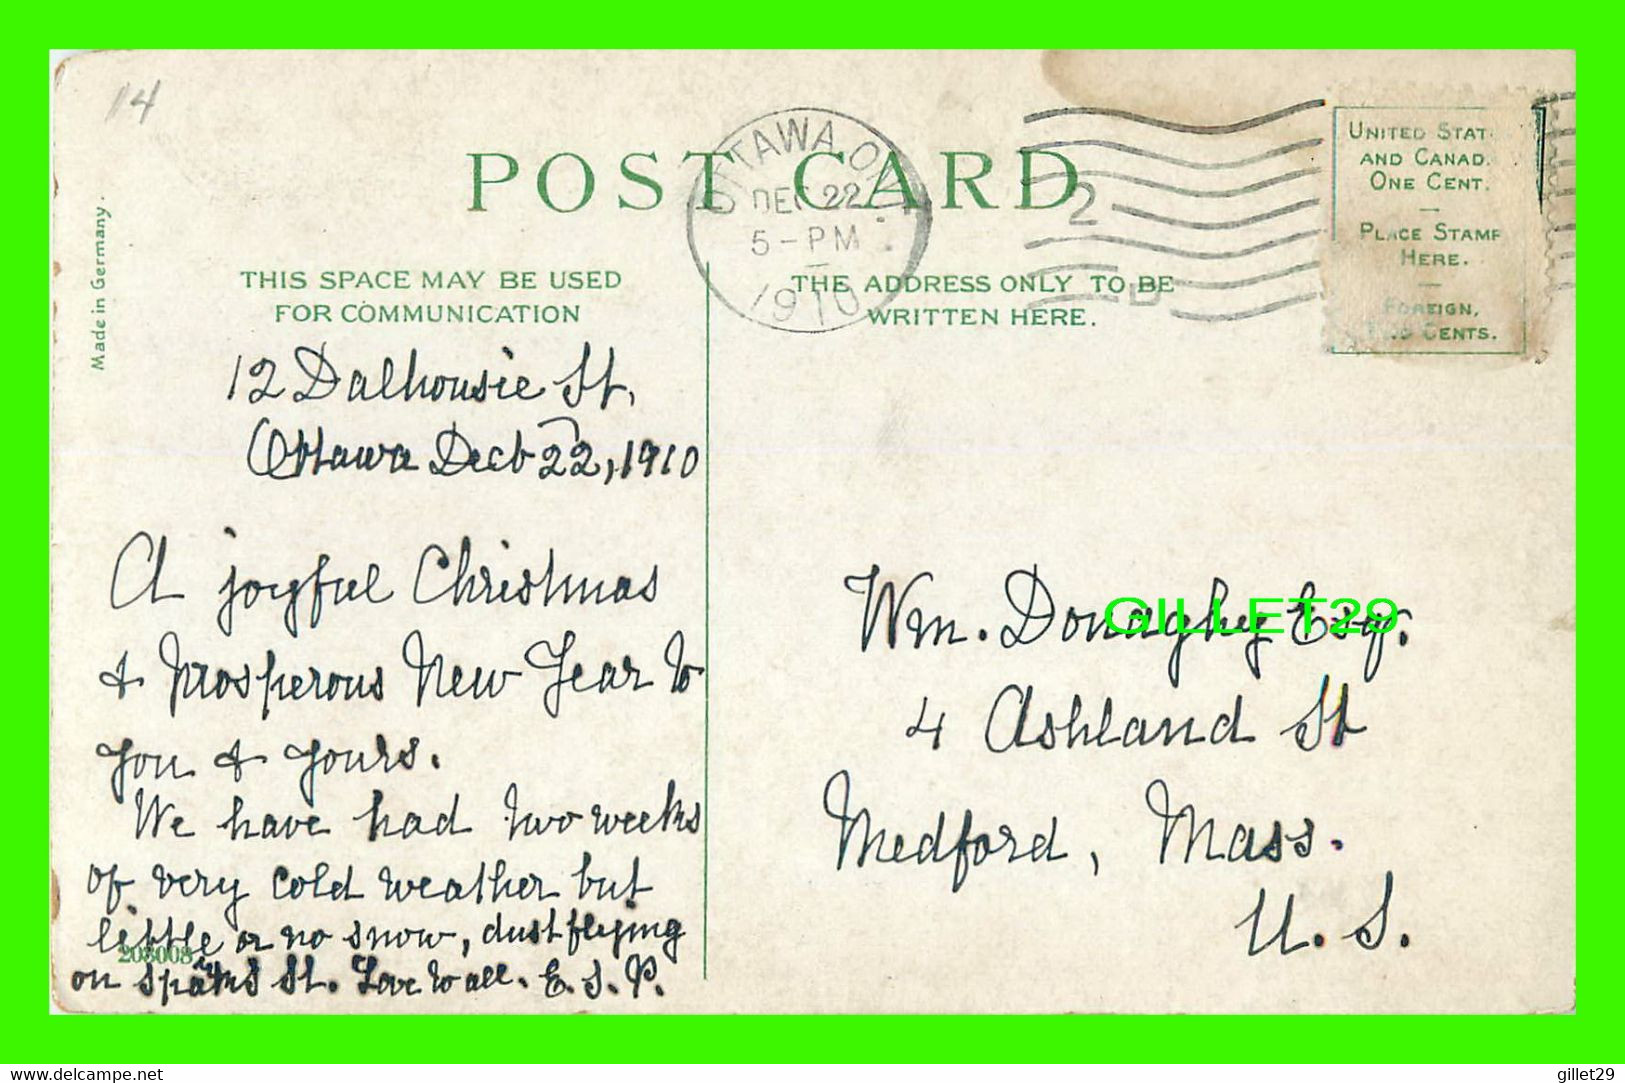 14
POST CARD
OTTAWA, ONT.
DEC 22
5-PM
1910
2
D
UNITED STAT
AND CANAD.
ONE CENT.
PLACE STAMP
HERE.
FOREIGN,
CENTS.
Made in Germany.
THIS SPACE MAY BE USED
FOR COMMUNICATION
THE ADDRESS ONLY TO BE
WRITTEN HERE.
12 Dalhousie St,
Ottawa Decb 22, 1910
A joyful Christmas
& prosperous New Year to
you & yours.
We have had two weeks
of very cold weather but
little or no snow, dust flying
on St. Love to all. E. S. P.
208008
Wm. Donaghy Esq.
4 Ashland St
Medford, Mass.
U. S.
GILLET29
www.delcampe.net
gillet29